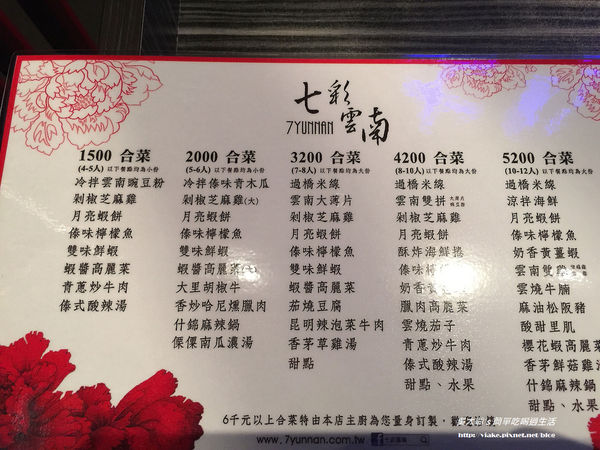 七彩雲南
7YUNNAN
1500 合菜
(4-5人) 以下餐點均為小份
冷拌雲南豌豆粉
剁椒芝麻雞
月亮蝦餅
傣味檸檬魚
雙味鮮蝦
蝦醬高麗菜
青蔥炒牛肉
傣式酸辣湯
2000 合菜
(5-6人) 以下餐點均為小份
冷拌傣味青木瓜
剁椒芝麻雞(大)
月亮蝦餅
傣味檸檬魚
雙味鮮蝦
蝦醬高麗菜
大里胡椒牛
香炒哈尼燻臘肉
什錦麻辣鍋
傈僳南瓜濃湯
3200 合菜
(7-8人) 以下餐點均為大份
過橋米線
雲南大薄片
剁椒芝麻雞
月亮蝦餅
傣味檸檬魚
雙味鮮蝦
蝦醬高麗菜
茄燒豆腐
昆明辣泡菜牛肉
香茅草雞湯
甜點
4200 合菜
(8-10人) 以下餐點均為大份
過橋米線
雲南雙拼
剁椒芝麻雞
月亮蝦餅
酥炸海鮮捲
傣味檸檬魚
奶香
臘肉高麗菜
雲燒茄子
青蔥炒牛肉
傣式酸辣湯
甜點、水果
5200 合菜
(10-12人) 以下餐點均為大份
過橋米線
涼拌海鮮
月亮蝦餅
傣味檸檬魚
奶香黃薑蝦
雲南雙
雲燒牛腩
麻油松阪豬
酸甜里肌
櫻花蝦高麗菜
香茅鮮菇雞湯
什錦麻辣鍋
甜點、水果
6千元以上合菜特由本店主廚為您量身訂製，歡
www.7yunnan.com.tw
七彩雲南
簡單吃喝過生活
http://viake.pixnet.net/blog